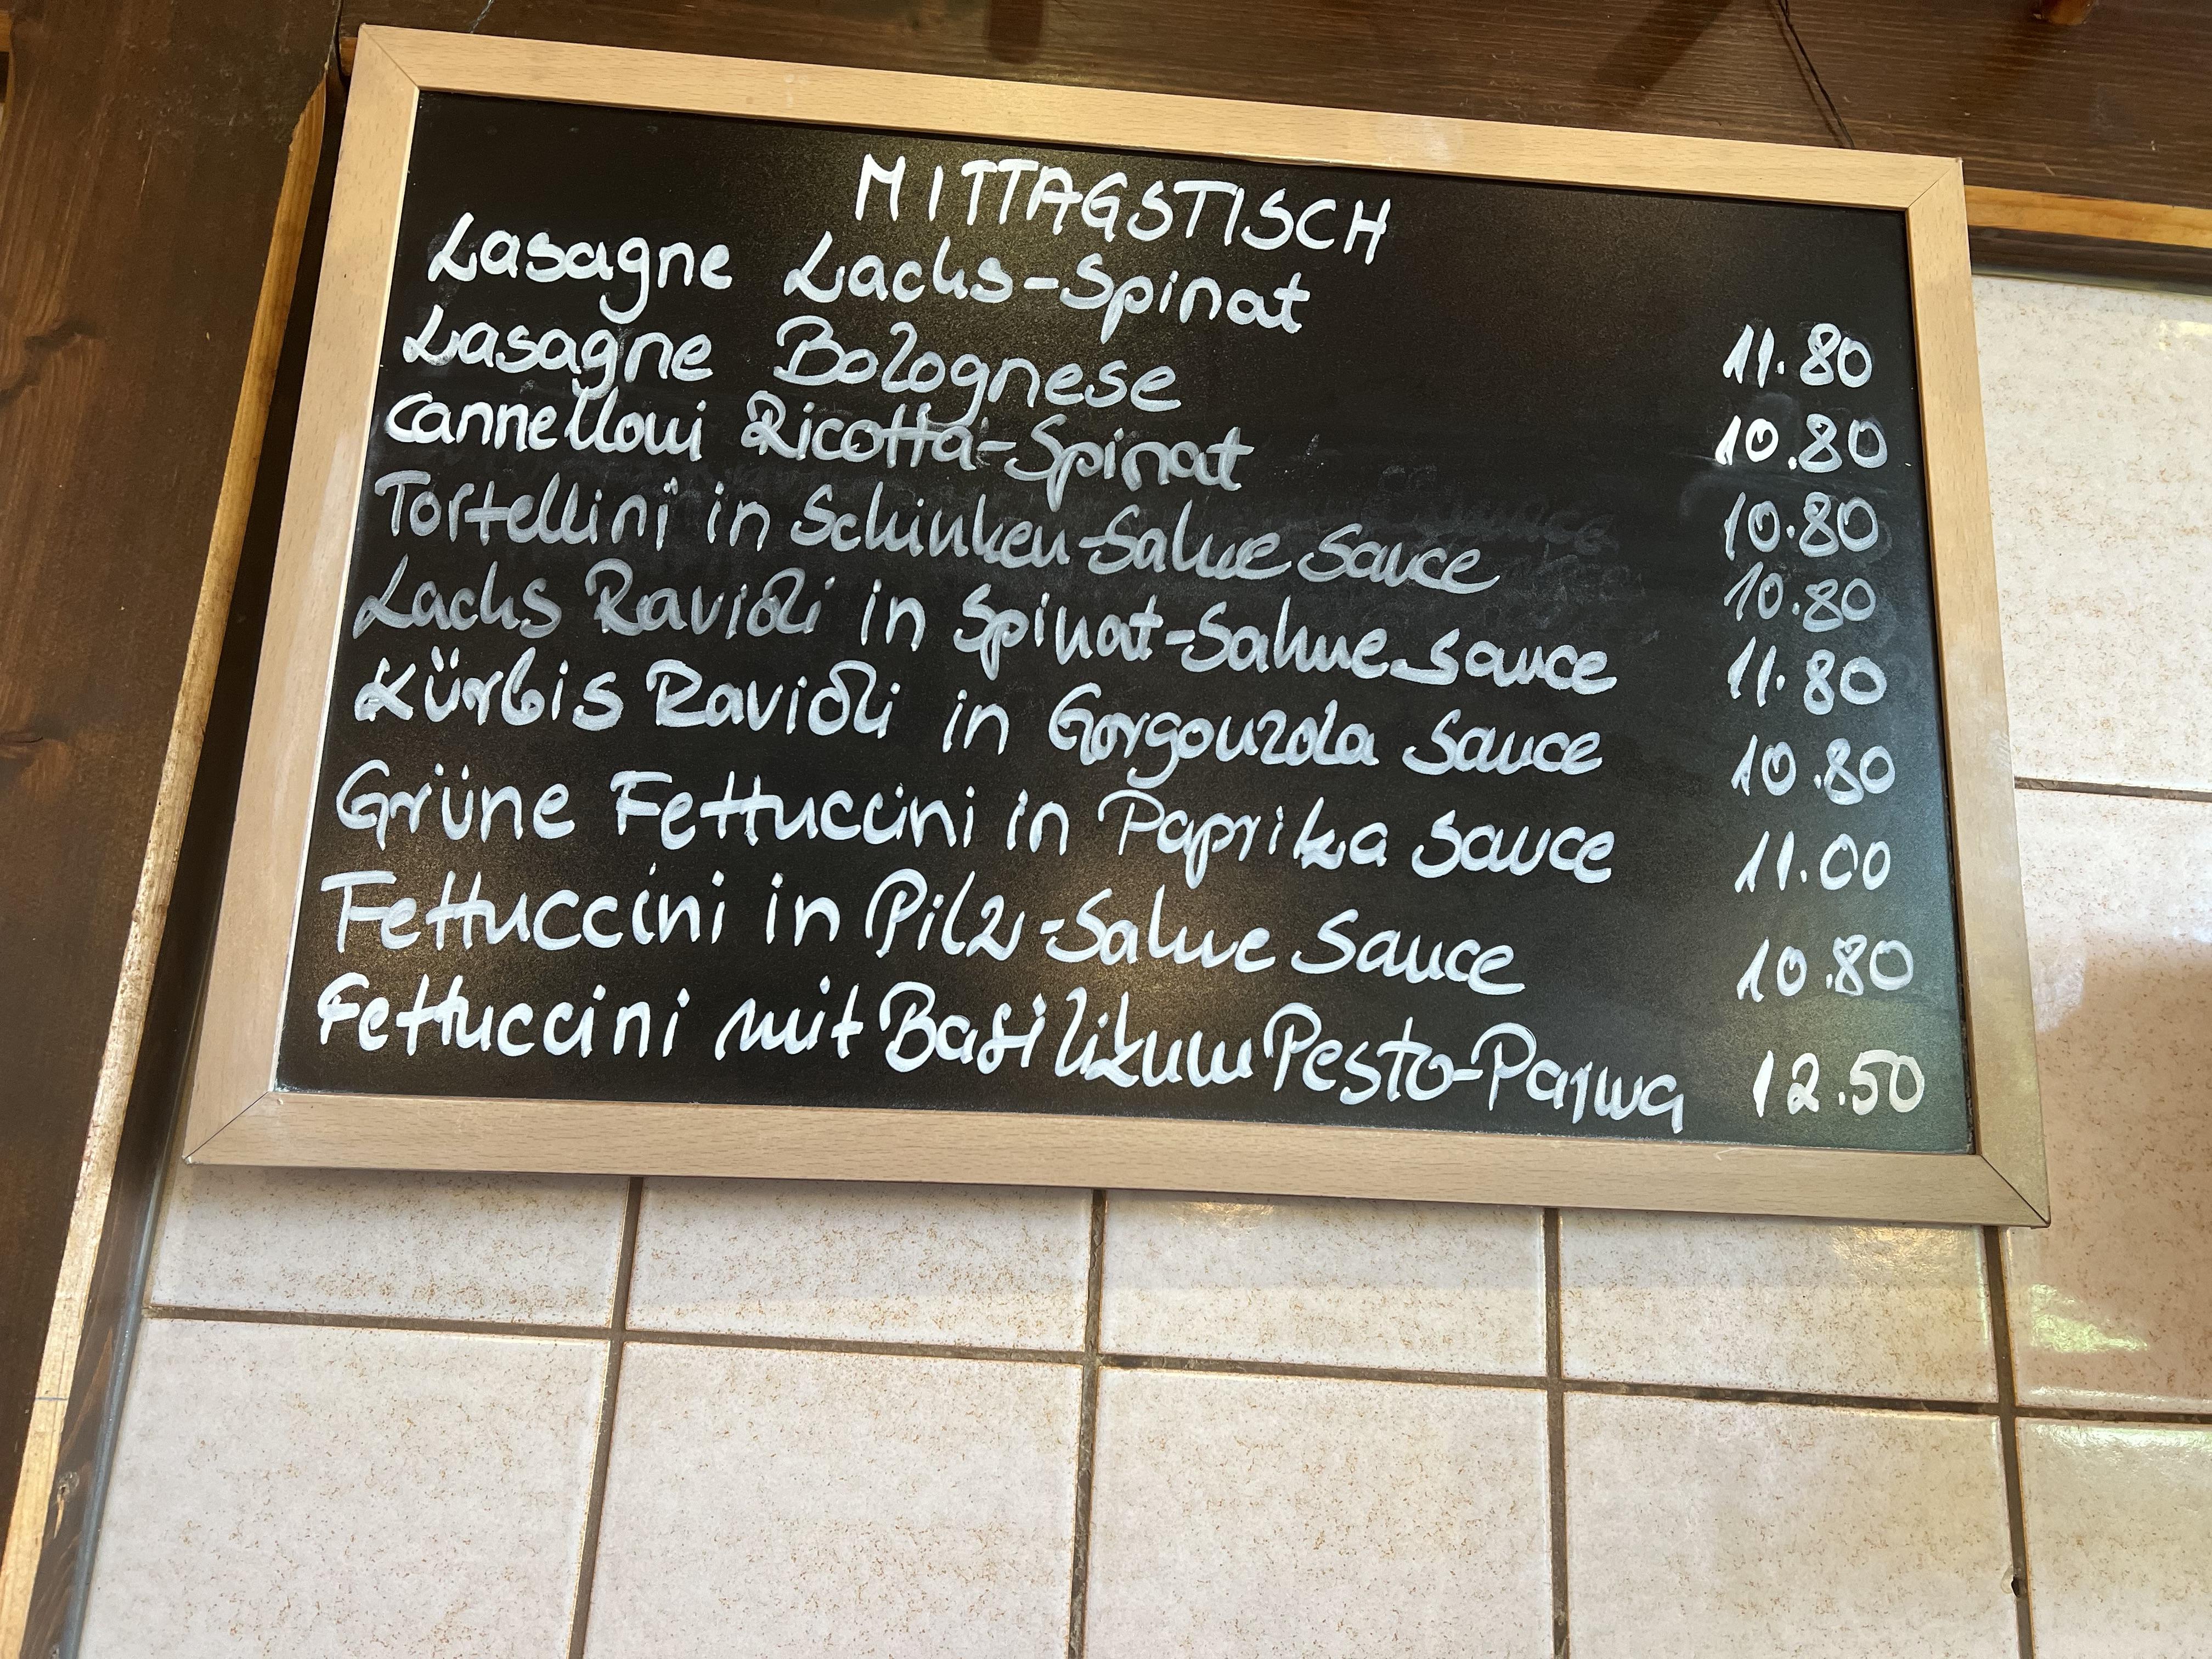 MITTAGSTISCH
Lasagne Lachs-Spinat 11.80
Lasagne Bolognese 10.80
Cannelloni Ricotta-Spinat 10.80
Tortellini in Schinken-Sahne Sauce 10.80
Lachs Ravioli in Spinat-Sahne Sauce 11.80
Kürbis Ravioli in Gorgonzola Sauce 10.80
Grüne Fettuccini in Paprika Sauce 11.00
Fettuccini in Pilz-Sahne Sauce 10.80
Fettuccini mit Basilikum Pesto-Parma 12.50